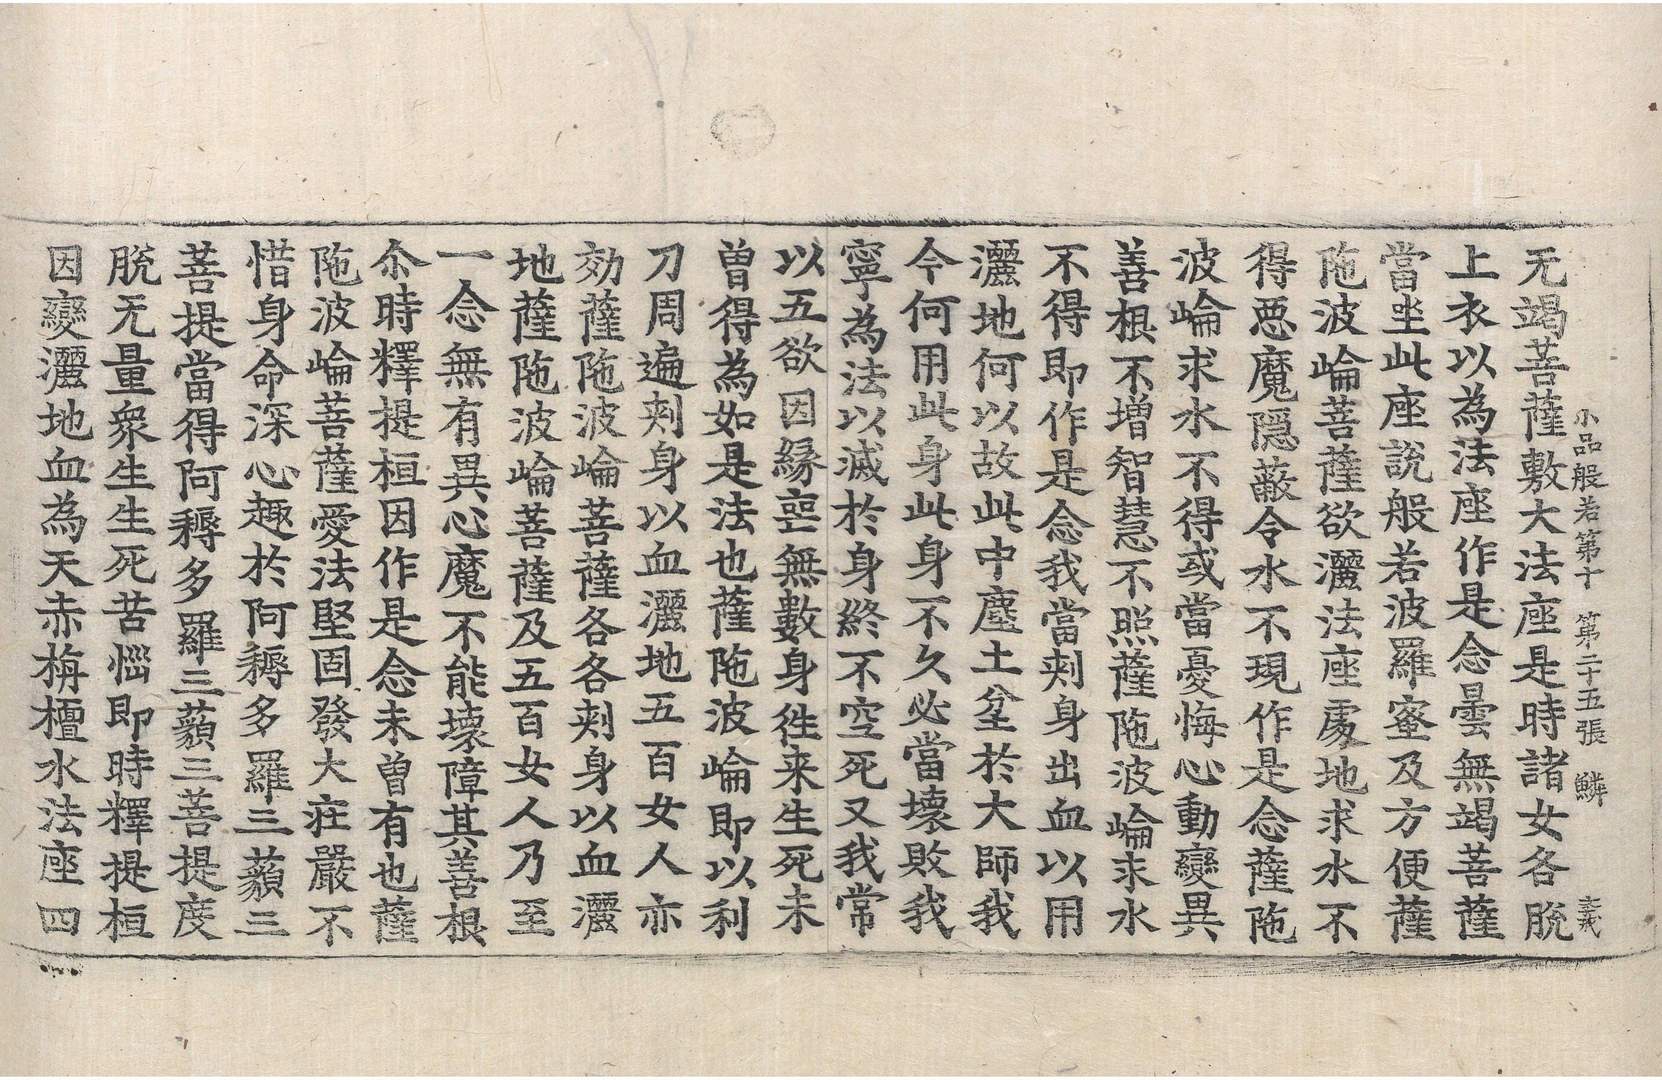 小品般若第十　第二十五張　鱗
无竭菩薩敷大法座是時諸女各脫
上衣以為法座作是念曇無竭菩薩
當坐此座說般若波羅蜜及方便薩
陁波崘菩薩欲灑法座處地求水不
得惡魔隱蔽令水不現作是念薩陁
波崘求水不得或當憂悔心動變異
善根不增智慧不照薩陁波崘求水
不得即作是念我當刾身出血以用
灑地何以故此中塵土坌於大師我
今何用此身此身不久必當壞敗我
寧為法以滅於身終不空死又我常
以五欲因緣喪無數身往来生死未
曾得為如是法也薩陁波崘即以利
刀周遍刾身以血灑地五百女人亦
効薩陁波崘菩薩各各刾身以血灑
地薩陁波崘菩薩及五百女人乃至
一念無有異心魔不能壞障其善根
尒時釋提桓因作是念未曾有也薩
陁波崘菩薩愛法堅固發大庄嚴不
惜身命深心趣於阿耨多羅三藐三
菩提當得阿耨多羅三藐三菩提度
脫无量衆生生死苦惱即時釋提桓
因變灑地血為天赤栴檀水法座四